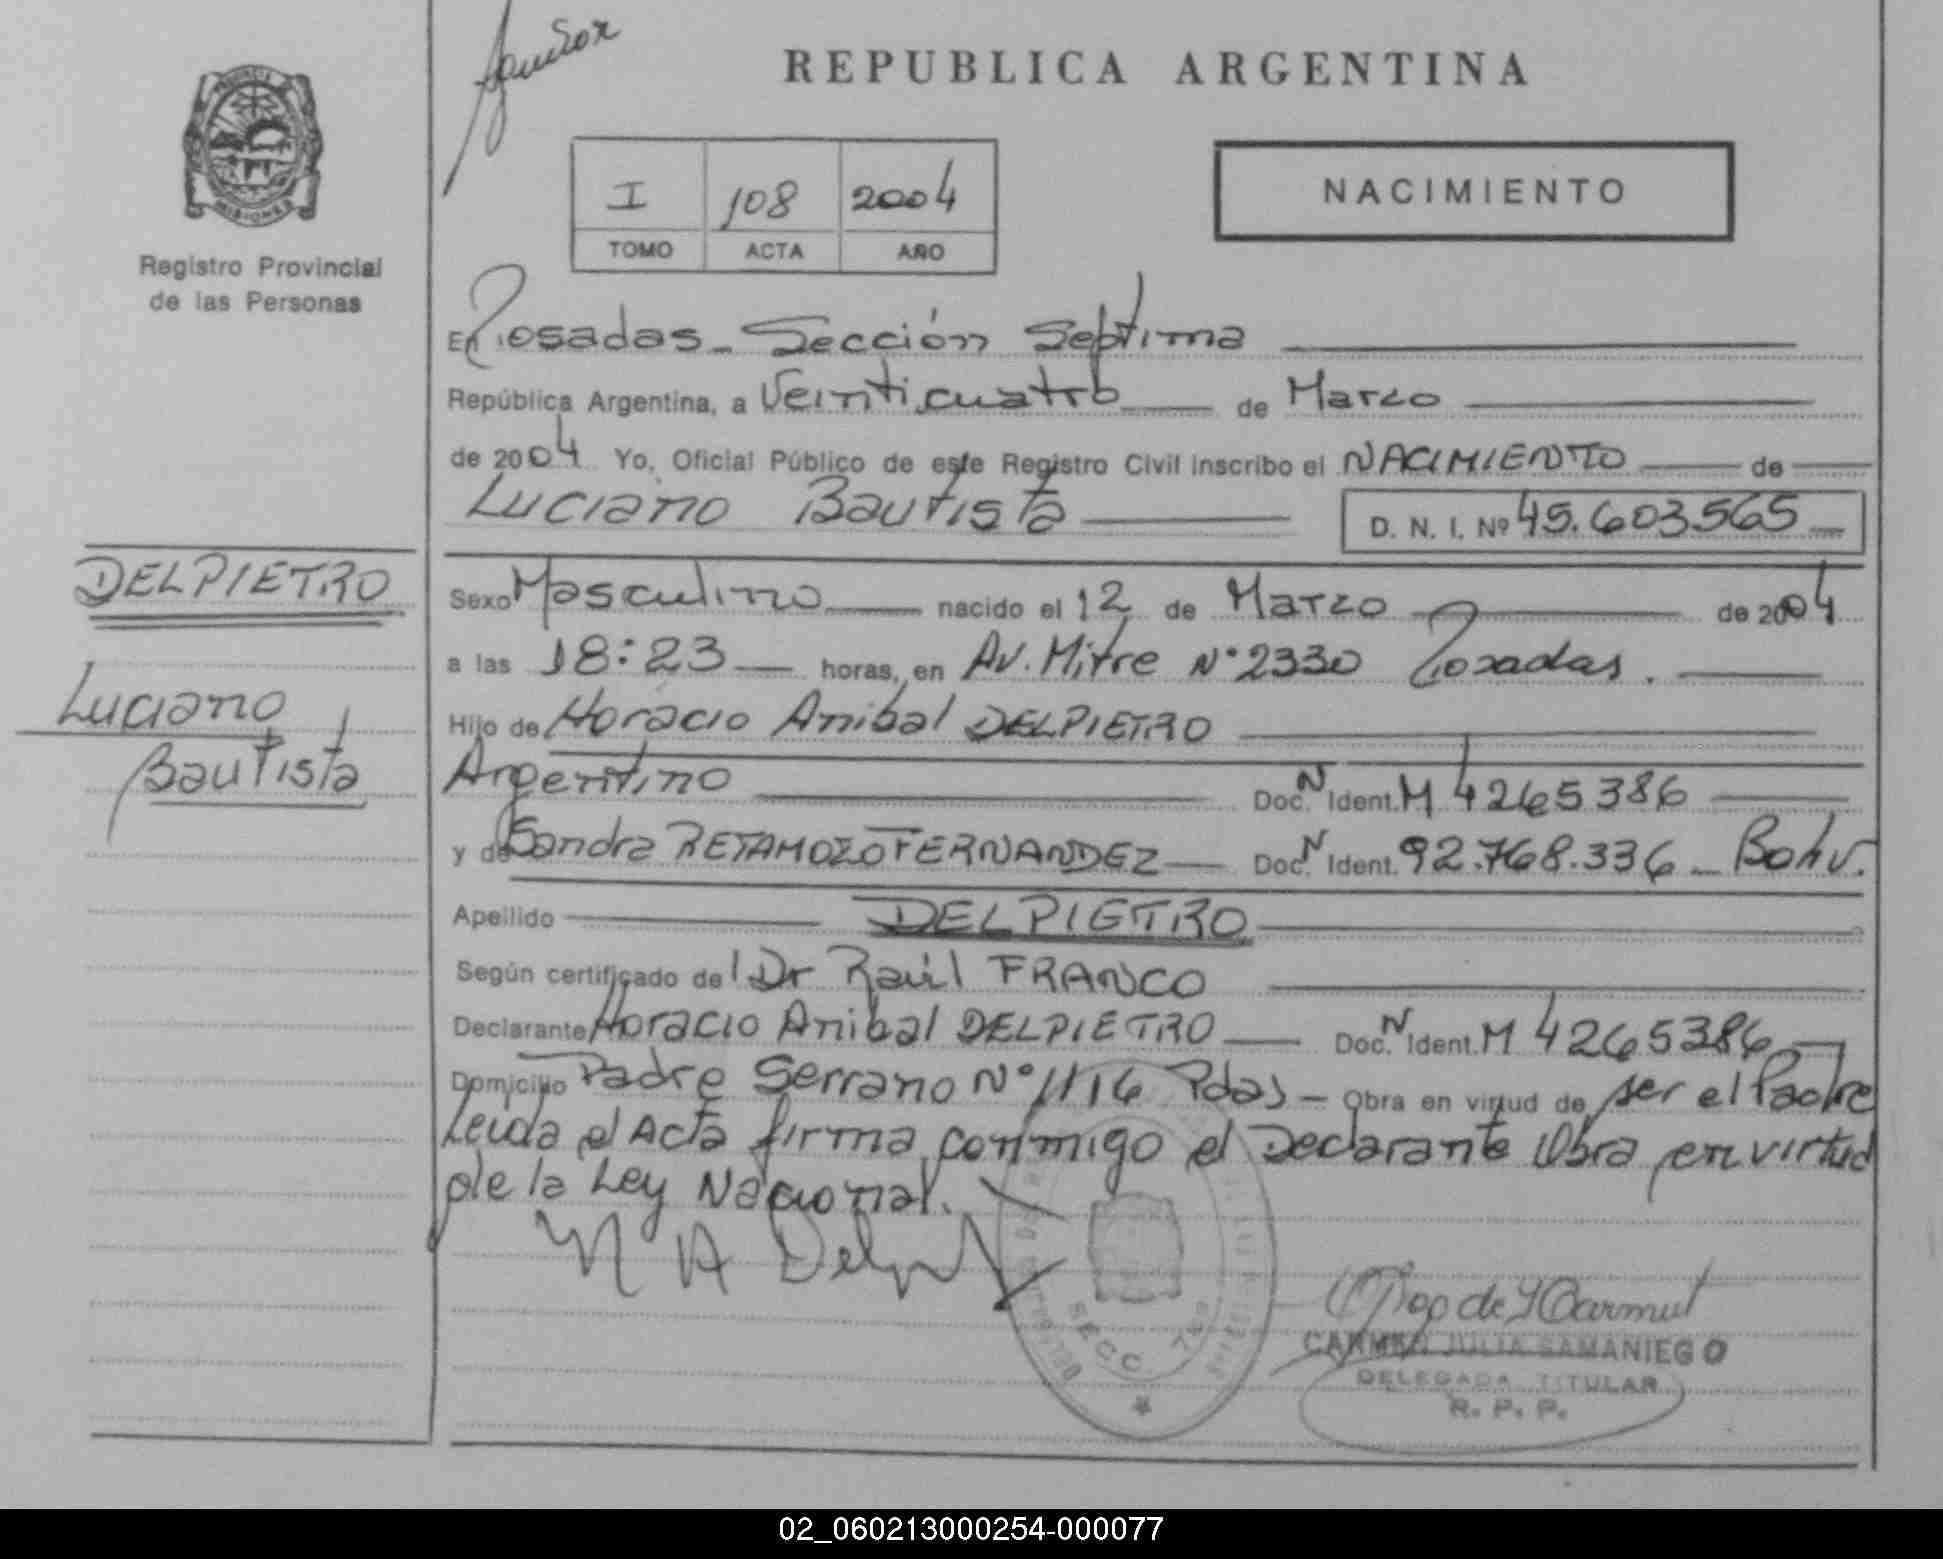 REPUBLICA ARGENTINA
MISIONES
Registro Provincial
de las Personas
I 108 2004
TOMO ACTA AÑO
NACIMIENTO
En Posadas - Sección Septima
República Argentina, a Veinticuatro de Marzo
de 2004 Yo, Oficial Público de este Registro Civil inscribo el NACIMIENTO de
Luciano Bautista D. N. I. Nº 45.603.565
DELPIETRO
Luciano
Bautista
Sexo Masculino nacido el 12 de Marzo de 2004
a las 18:23 horas, en Av. Mitre N° 2330 Posadas.
Hijo de Horacio Anibal DELPIETRO
Argentino Doc. N Ident. M 4265386
y de Sandra RETAMOZO FERNANDEZ Doc. N Ident. 92.768.336 - Boliv.
Apellido DELPIETRO
Según certificado de l Dr Raúl FRANCO
Declarante Horacio Anibal DELPIETRO Doc. N Ident. M 4265386
Domicilio Padre Serrano N° 1116 Pdas - Obra en virtud de ser el Padre
Leida el Acta firma conmigo el Declarante Obra en virtud
de la Ley Nacional.
SECC. 7ma
CARMEN JULIA SAMANIEGO
DELEGADA TITULAR
R. P. P.
02_060213000254-000077